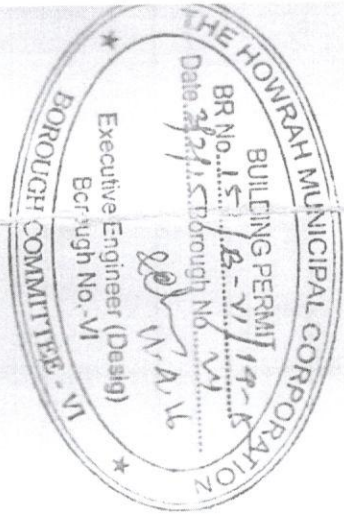 THE HOWRAH MUNICIPAL CORPORATION
BUILDING PERMIT
BR No. 157/B-VI/14-15
Date Borough No. VI
Executive Engineer (Desig)
Borough No.-VI
BOROUGH COMMITTEE - VI